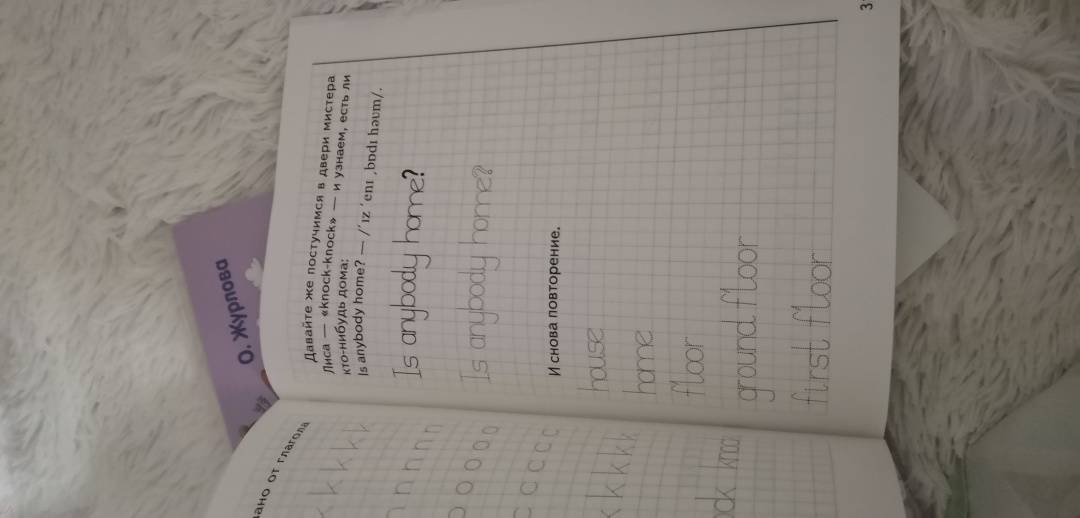 О. Журлова
зано от глагола
k k k k
n n n n
o o o o
c c c c
k k k k
Давайте же постучимся в двери мистера
Лиса — «knock-knock» — и узнаем, есть ли
кто-нибудь дома:
Is anybody home? — /ˈɪz ˈenɪ ˌbɒdɪ həʊm/.
Is anybody home?
Is anybody home?
И снова повторение.
house
home
floor
ground floor
first floor